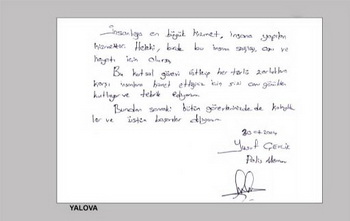 İnsanlığa en büyük hizmet, insana yapılan
hizmettir. Hele ki, bu insan sağlığı, canı ve
hayatı için olursa.
Bu kutsal görevi üstlenip her türlü zorlukları
karşı hizmet ettiğiniz için sizi can gönülden
kutluyor ve tebrik ediyorum.
Bundan sonraki bütün görevlerinizde de kolaylık
lar ve üstün başarılar diliyorum.
Yusuf
Polis Memuru
YALOVA